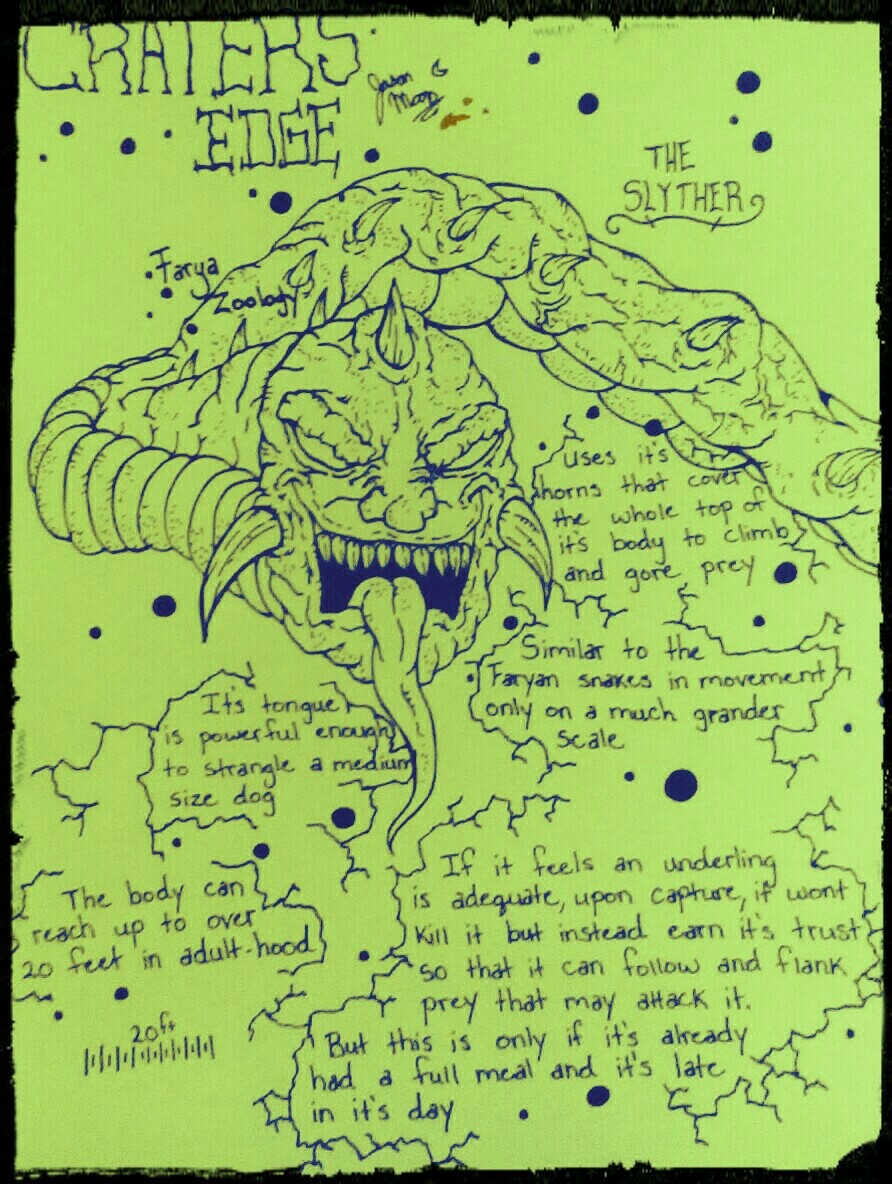 CRATERS
EDGE
Jason
Moon
THE
SLYTHER
Farya
Zoology
Uses it's
horns that cover
the whole top of
it's body to climb
and gore prey
Similar to the
Faryan snakes in movement
only on a much grander
scale
It's tongue
is powerful enough
to strangle a medium
size dog
The body can
reach up to over
20 feet in adult-hood
20ft
If it feels an underling
is adequate, upon capture, it wont
kill it but instead earn it's trust
so that it can follow and flank
prey that may attack it.
But this is only if it's already
had a full meal and it's late
in it's day